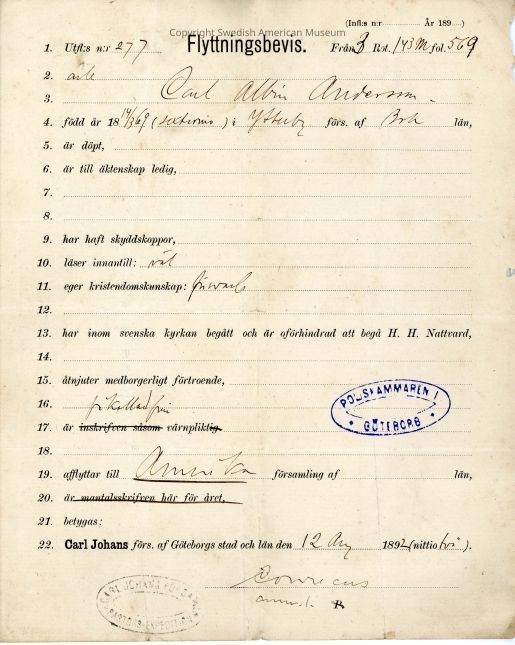 Copyright Swedish American Museum
(Infl:s n:r År 189 )
1. Utfl:s n:r 277 Flyttningsbevis. Från 3 Rot. 143 M fol. 569
2.
3. Carl Albin Anderson
4. född år 18 69 ( ) i Ytterby förs. af Boh län,
5. är döpt,
6. är till äktenskap ledig,
7.
8.
9. har haft skyddskoppor,
10. läser innantill: väl
11. eger kristendomskunskap: försvarlig
12.
13. har inom svenska kyrkan begått och är oförhindrad att begå H. H. Nattvard,
14.
15. åtnjuter medborgerligt förtroende,
16.
17. är inskrifven såsom värnpliktig.
18.
19. afflyttar till Amerika församling af län,
20. är mantalsskrifven här för året,
21. betygas;
22. Carl Johans förs. af Göteborgs stad och län den 12 Aug 1892 (nittiotvå).
POLISKAMMAREN I
GÖTEBORG
CARL JOHANS FÖRSAML.
PASTORS-EXPEDITION